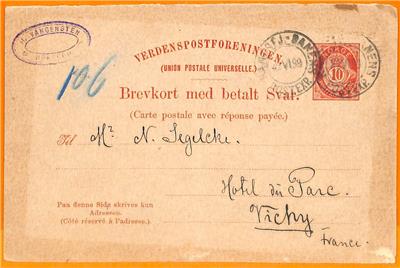 J. VANGENSTEN
VERDENSPOSTFORENINGEN.
(UNION POSTALE UNIVERSELLE.)
Brevkort med betalt Svar.
(Carte postale avec réponse payée.)
106
NORGE
10
VI 99
POSTEXP.
Til Mr. N. Segelcke.
Hotel du Parc.
Vichy
France.
Paa denne Side skrives kun
Adressen.
(Côté réservé à l'adresse.)